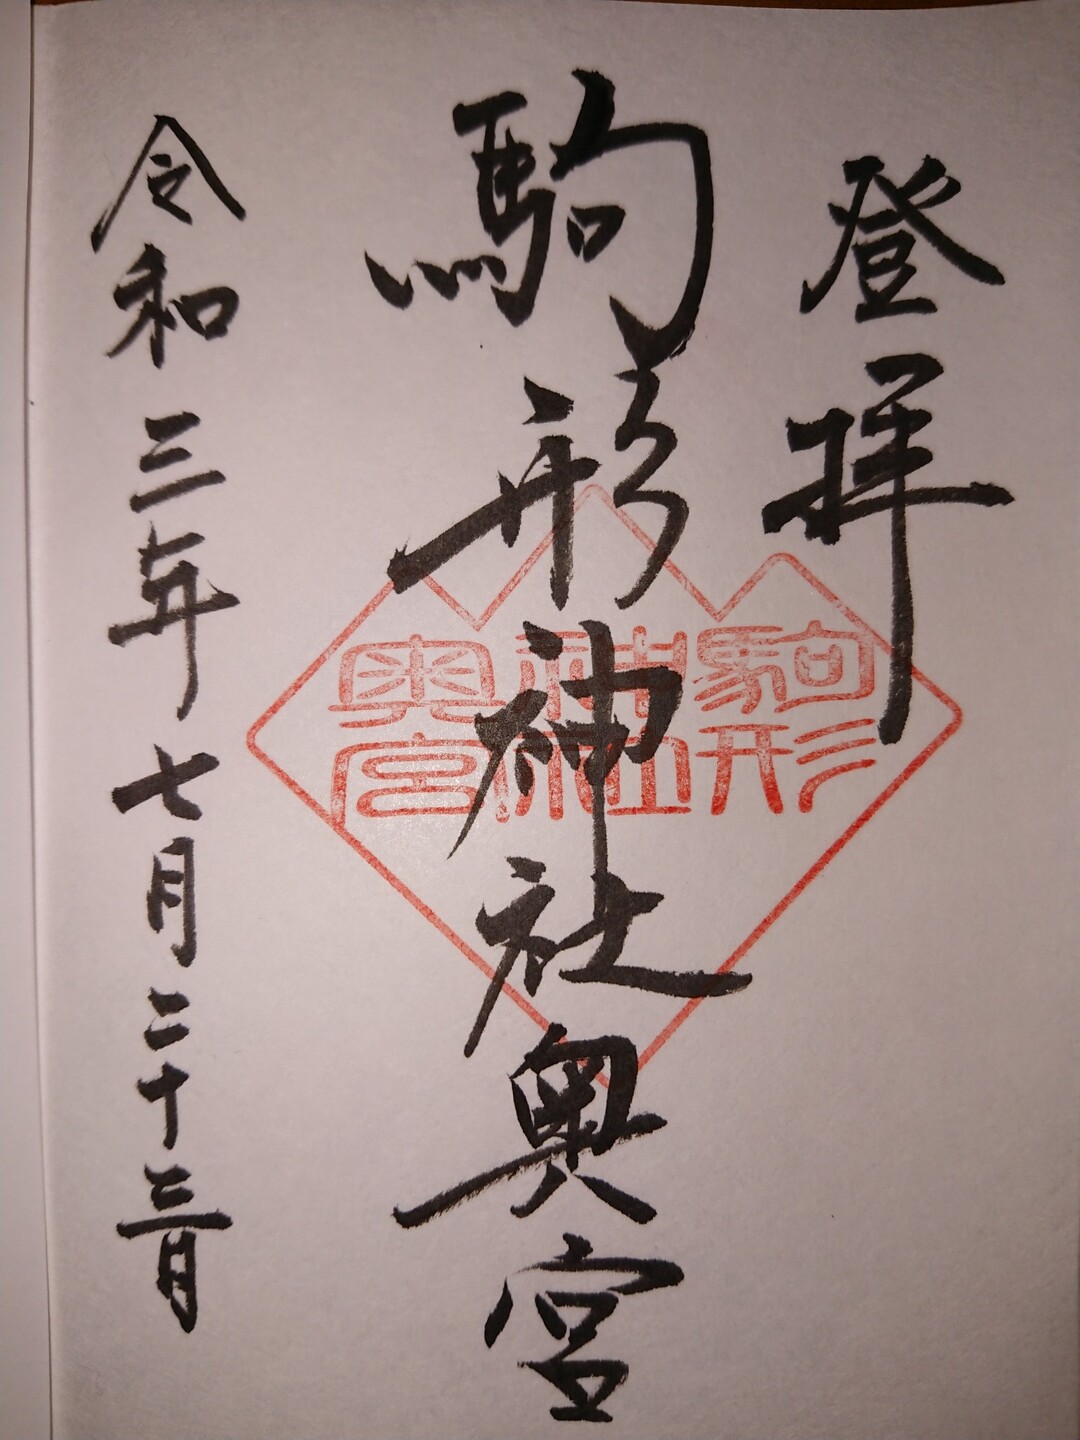 登拝
駒形神社奥宮
令和三年七月二十三日
駒形
神社
奥宮